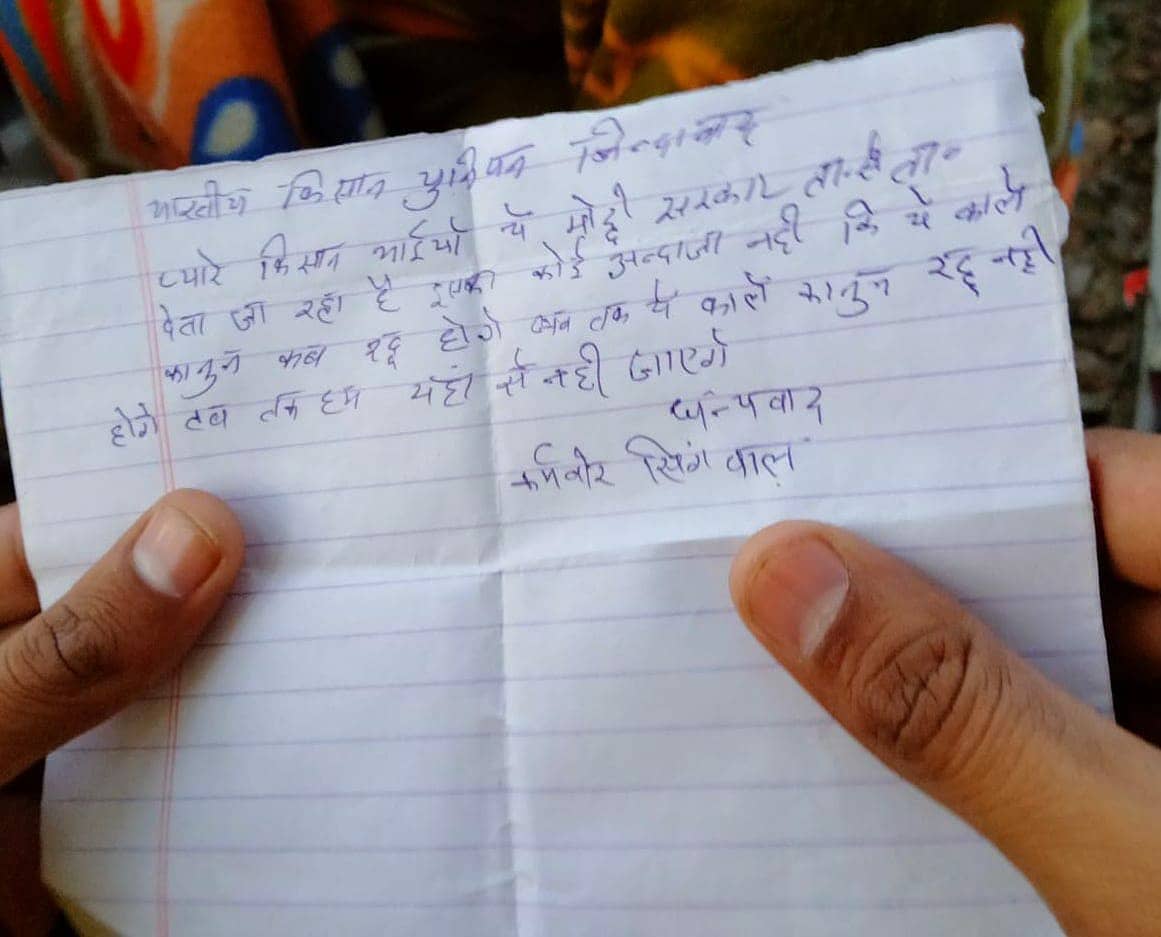 भारतीय किसान युनियन जिन्दाबाद
प्यारे किसान भाईयों ये मोदी सरकार तारीख ता॰
देता जा रहा है इसकी कोई अन्दाजा नही कि ये काले
कानुन कब रद्द होगे जब तक ये काले कानुन रद्द नही
होगे तब तक हम यहां से नही जाएगे
धन्यवाद
कर्मवीर सिंग वाल